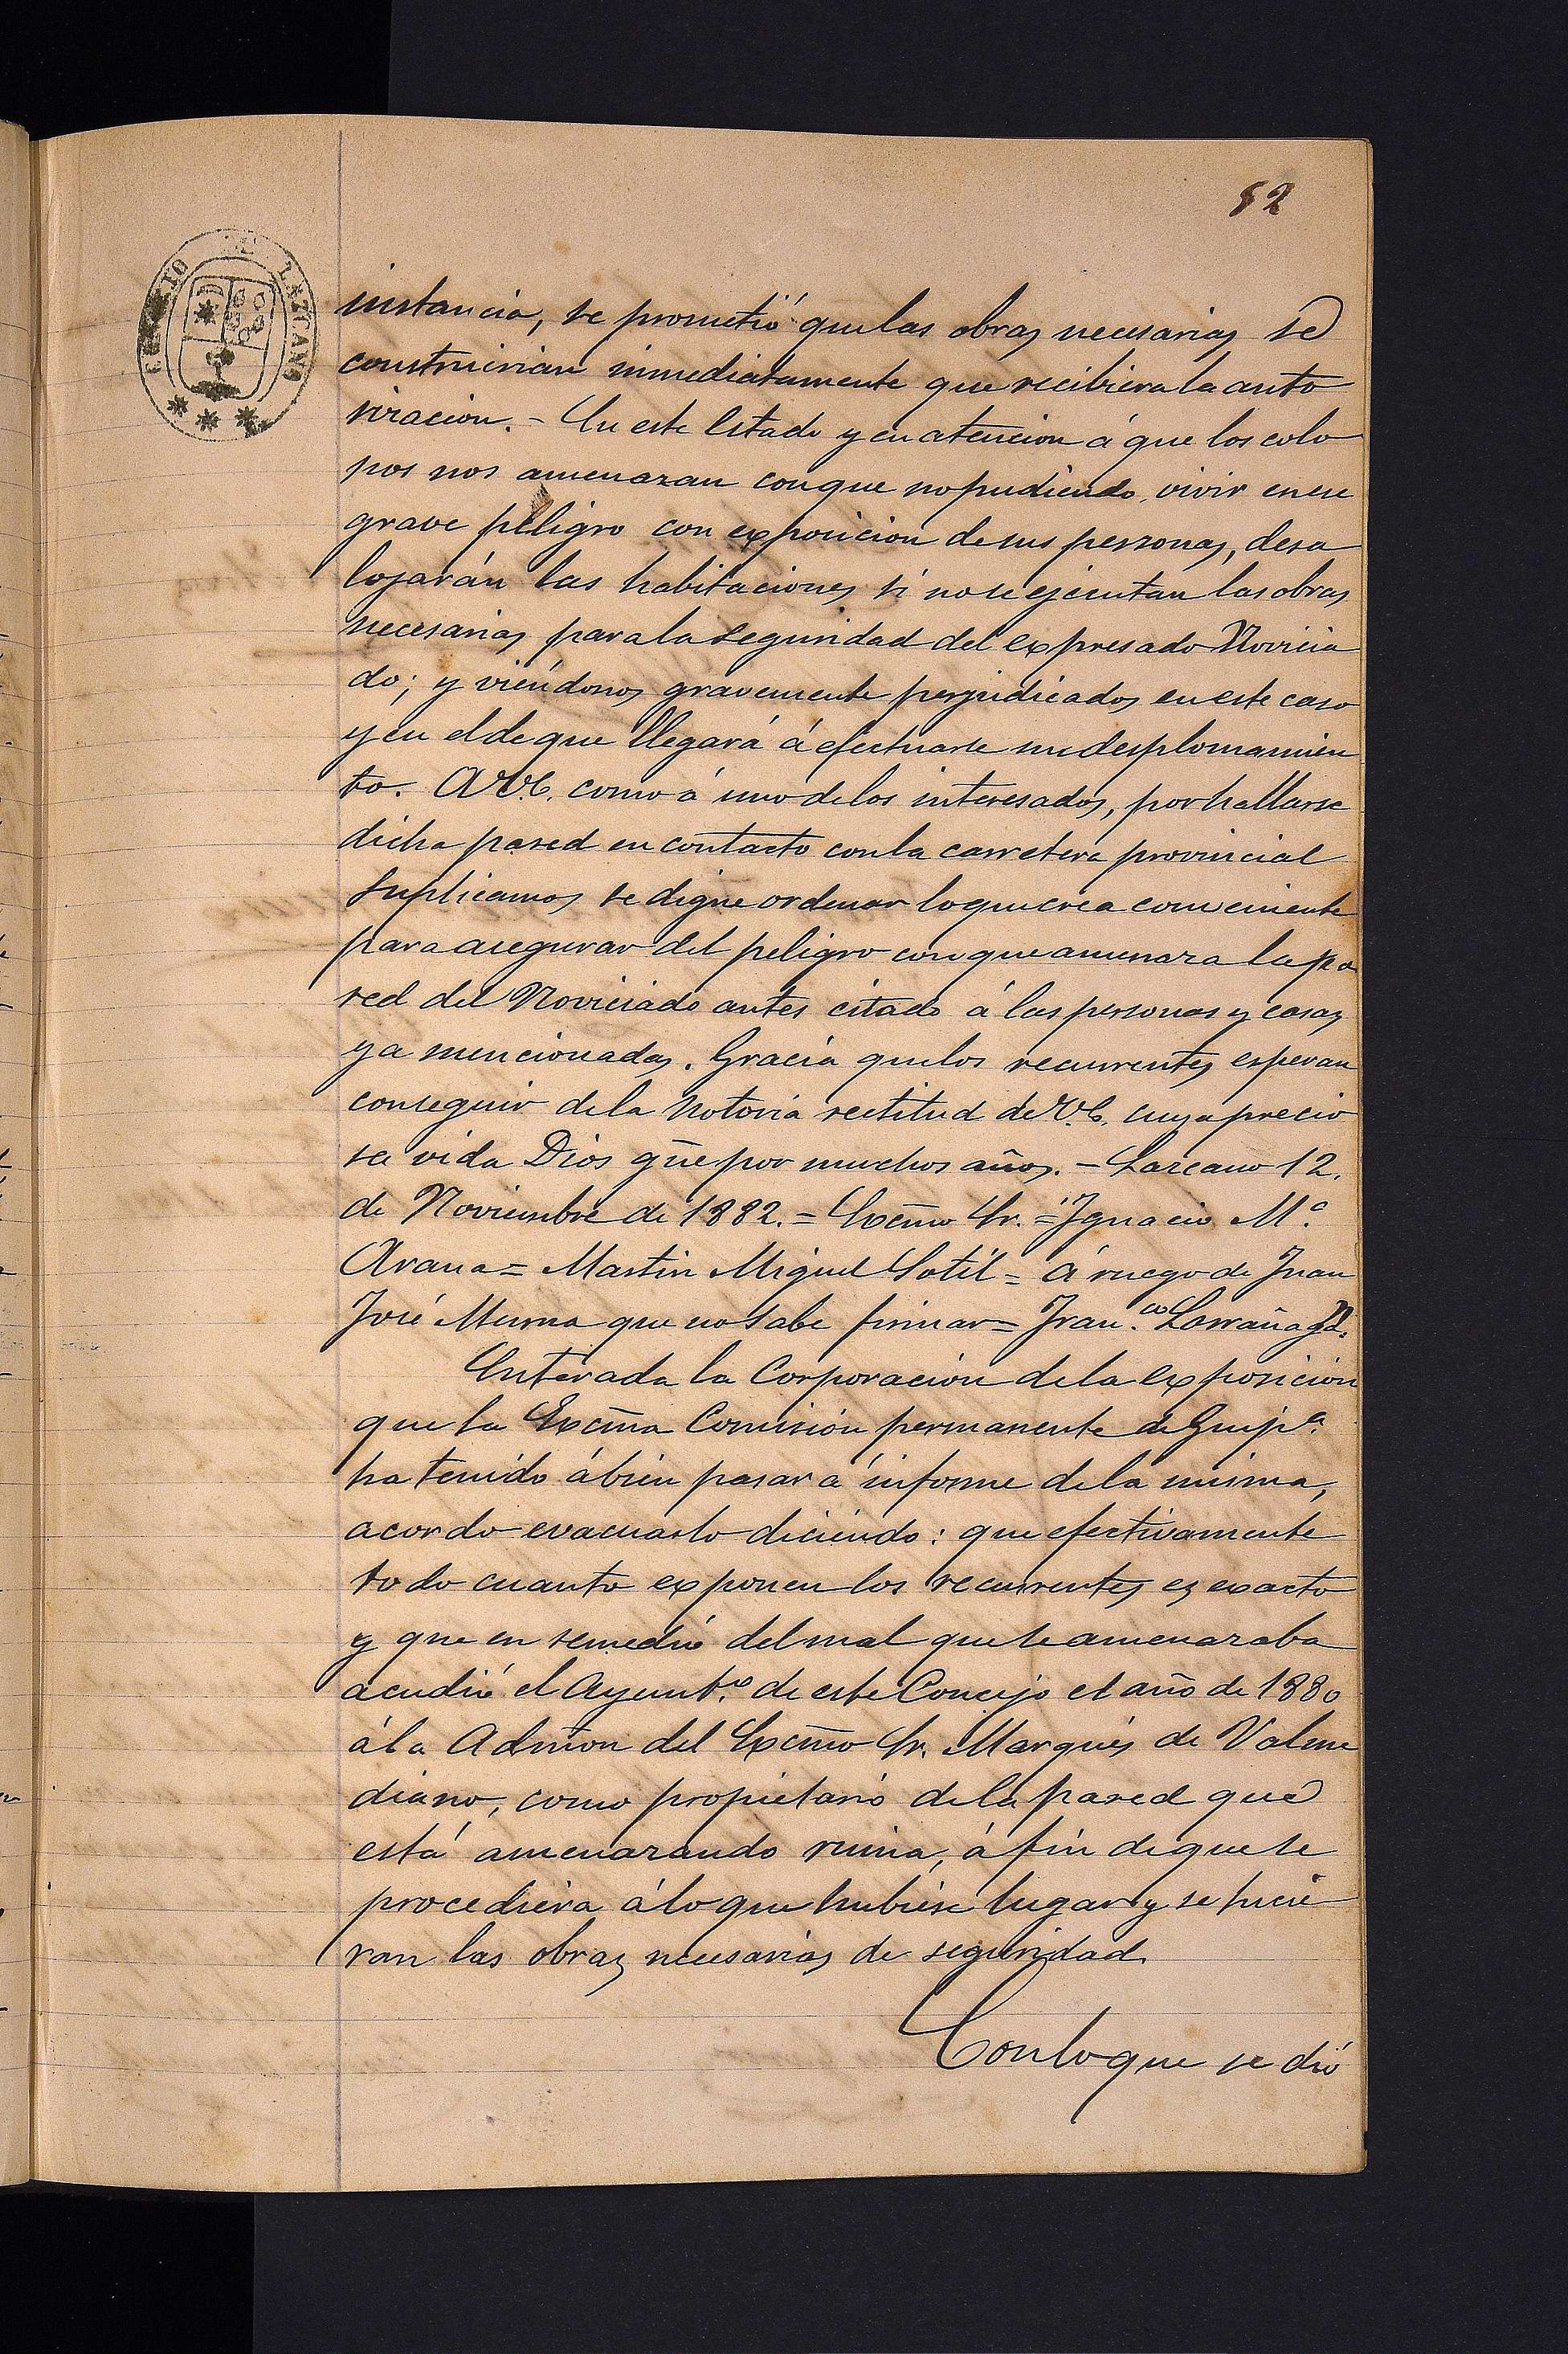 82
CONCEJO DE LAZCANO
instancia, se prometió que las obras necesarias se
construirian inmediatamente que recibiera la auto
rizacion. - En este Estado y en atencion á que los colo
nos nos amenazan con que no pudiendo vivir en ese
grave peligro con exposicion de sus personas, desa
lojarán las habitaciones si no se ejecutan las obras
necesarias para la seguridad del expresado Novicia
do; y viéndonos gravemente perjudicados en este caso
y en el de que llegará á efectuarse un desplomamien
to. A V.E. como á uno de los interesados, por hallarse
dicha pared en contacto con la carretera provincial
Suplicamos se digne ordenar lo que crea conveniente
para asegurar del peligro con que amenaza la pa
red del Noviciado antes citado á las personas y casas
ya mencionadas. Gracia que los recurrentes esperan
conseguir de la notoria rectitud de V.E. cuya precio
sa vida Dios gũe por muchos años. - Lazcano 12.
de Noviembre de 1882. = Excmo Sr. = Ignacio Mª
Arana = Martin Miguel Sotil = á ruego de Juan
José Murua que no sabe firmar = Fran.co Larrañaga.
Enterada la Corporacion de la exposicion
que la Excma Comisión permanente de Guipª
ha tenido á bien pasar á informe de la misma,
acordo evacuarlo diciendo: que efectivamente
todo cuanto exponen los recurrentes es exacto
y que en remedio del mal que se amenazaba
acudió el Ayunt.o de este Concejo el año de 1880
á la Admon del Excmo Sr. Marqués de Valme
diano, como propietario de la pared que
está amenazando ruina, á fin de que se
procediera á lo que hubiese lugar y se hicie
ran las obras necesarias de seguridad.
Con lo que se dió